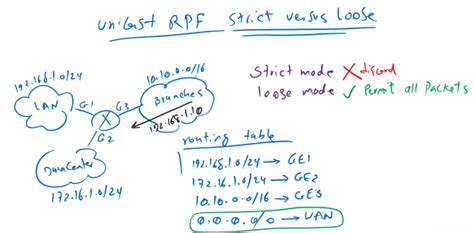 unicast RPF strict versus loose
192.168.1.0/24
LAN
G1
X
G3
10.10.0.0/16
Branches
192.168.1.10
G2
DataCenter
172.16.1.0/24
Strict mode X discard
loose mode ✓ Permit all Packets
routing table
192.168.1.0/24 → GE1
172.16.1.0/24 → GE2
10.10.0.0/16 → GE3
0.0.0.0/0 → WAN